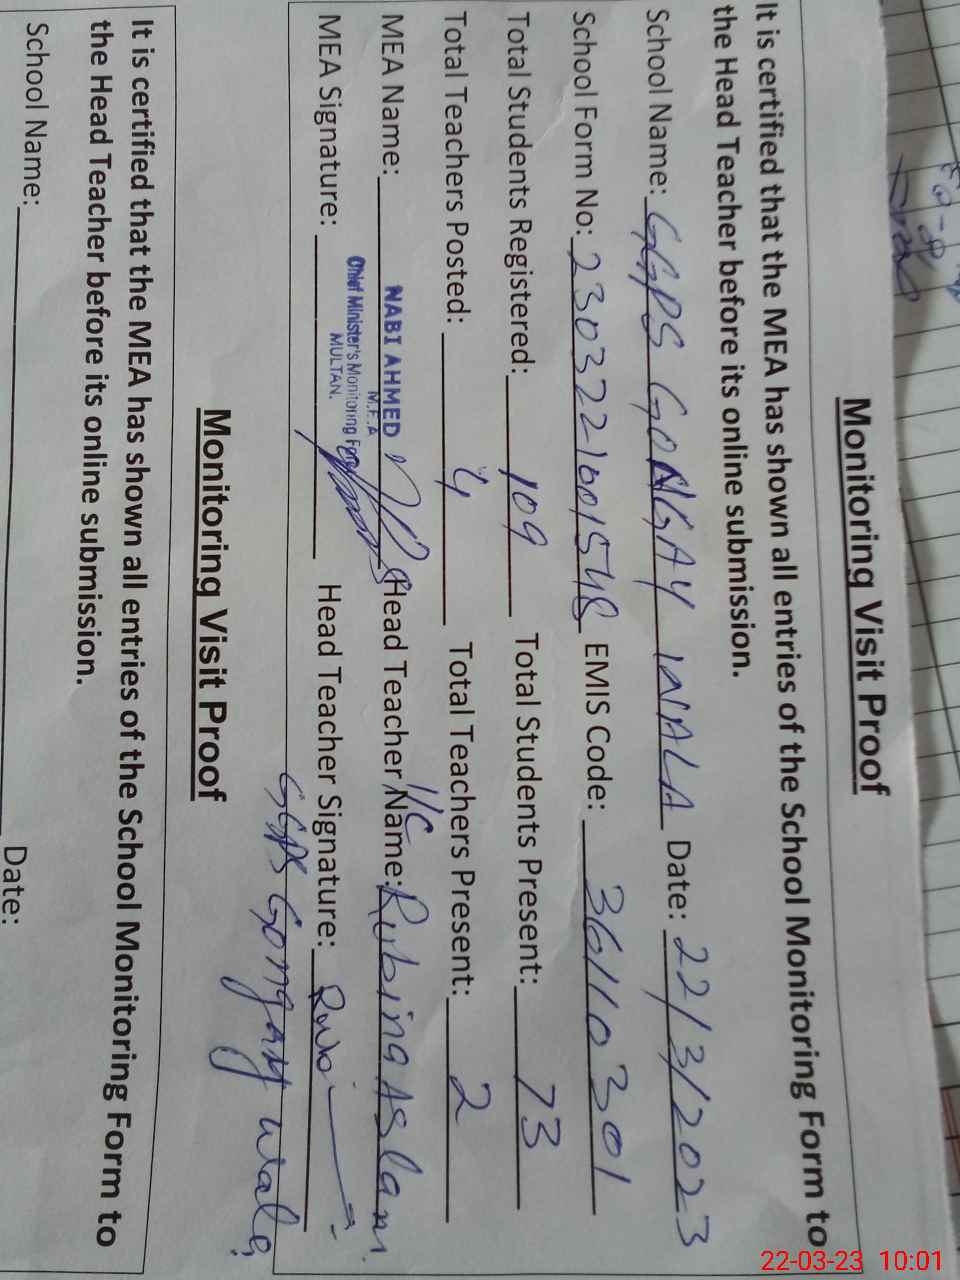 Monitoring Visit Proof
It is certified that the MEA has shown all entries of the School Monitoring Form to
the Head Teacher before its online submission.
School Name: GGPS GONGAY WALA Date: 22/3/2023
School Form No: 2303221001548 EMIS Code: 36110301
Total Students Registered: 109 Total Students Present: 73
Total Teachers Posted: 4 Total Teachers Present: 2
MEA Name: NABI AHMED Head Teacher Name: I/C Rubina Aslam
M.E.A
Chief Minister's Monitoring Force
MULTAN.
MEA Signature: Head Teacher Signature:
GGPS Gongay wala
Monitoring Visit Proof
It is certified that the MEA has shown all entries of the School Monitoring Form to
the Head Teacher before its online submission.
School Name: Date:
22-03-23 10:01